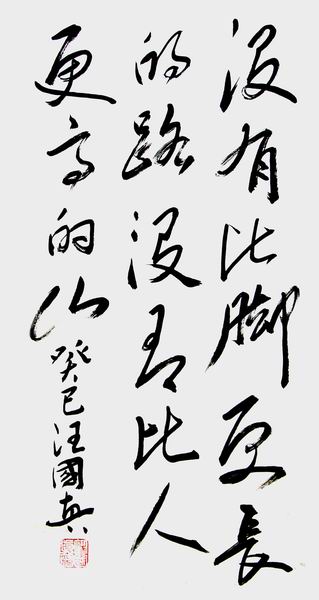 没有比脚更长
的路没有比人
更高的山
癸巳汪國真